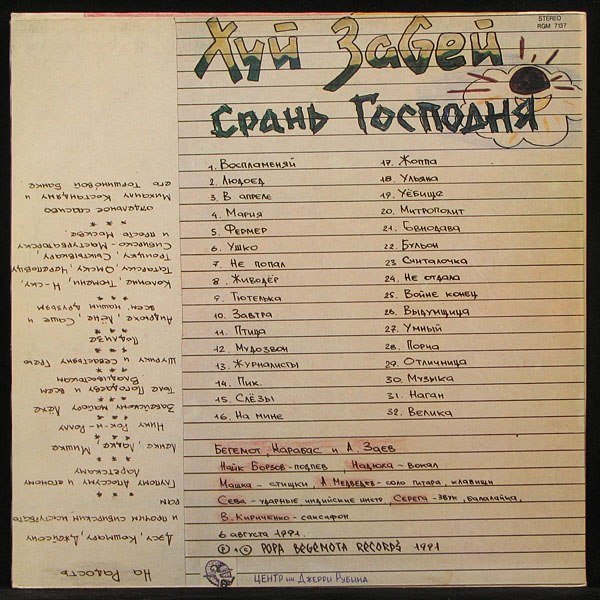 Хуй Забей
STEREO
RGM 7137
Срань Господня
1. Воспламеняй
2. Людоед
3. В апреле
4. Мария
5. Фермер
6. Ушко
7. Не попал
8. Живодёр
9. Тютелька
10. Завтра
11. Птица
12. Мудозвон
13. Журналисты
14. Пик.
15. Слёзы
16. На мине
17. Жоппа
18. Ульяна
19. Уёбище
20. Митрополит
21. Говнодава
22. Бульон
23. Синталочка
24. Не отдала
25. Войне конец
26. Выдумщица
27. Умный
28. Порна
29. Отличница
30. Музыка
31. Наган
32. Велика
Бегемот, Карабас и А. Заев
Найк Борзов - подпев, Надюха - вокал
Машка - стишки, А. Медведев - соло гитара, клавиши
Сева - ударные индийские инстр, Серега - звук, балалайка,
В. Кириченко - саксафон
6 августа 1991.
℗ + © POPA BEGEMOTA RECORDS 1991
ЦЕНТР им ДЖЕРРИ РУБИНА
На Радость
Дэсу, Кошмару, Джойсону
и прочим сибирским
там
* * *
Глупому и
Ларетскому
* * *
Ленке, Ладке, Мишке
* * *
Нику Рок-н-Роллу
* * *
майору Лёхе
Толе Погодаеву и всем
Владивостокам
* * *
Шурику и Севастьяну Грею
* * *
Подлизе
* * *
Андрюхе, Лёне, Саше и
всем нашим друзьям
* * *
Коломне, Тюмени, Н-ску,
Татарску, Омску, Череповцу
Троицку, Сыктывкару,
Сибирско-Мастурбаторску
и просто Москве.
* * *
отдельное спасибо
Михаилу Костандяну и
его Торшиновой Банке.